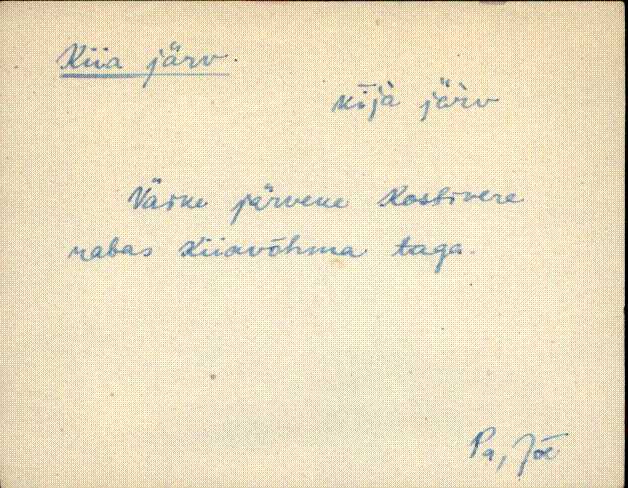 Kiia järv.
kījà jä̀rv
Väike järvene Kostivere
rabas Kiiavõhma taga.
Pa, Jõe